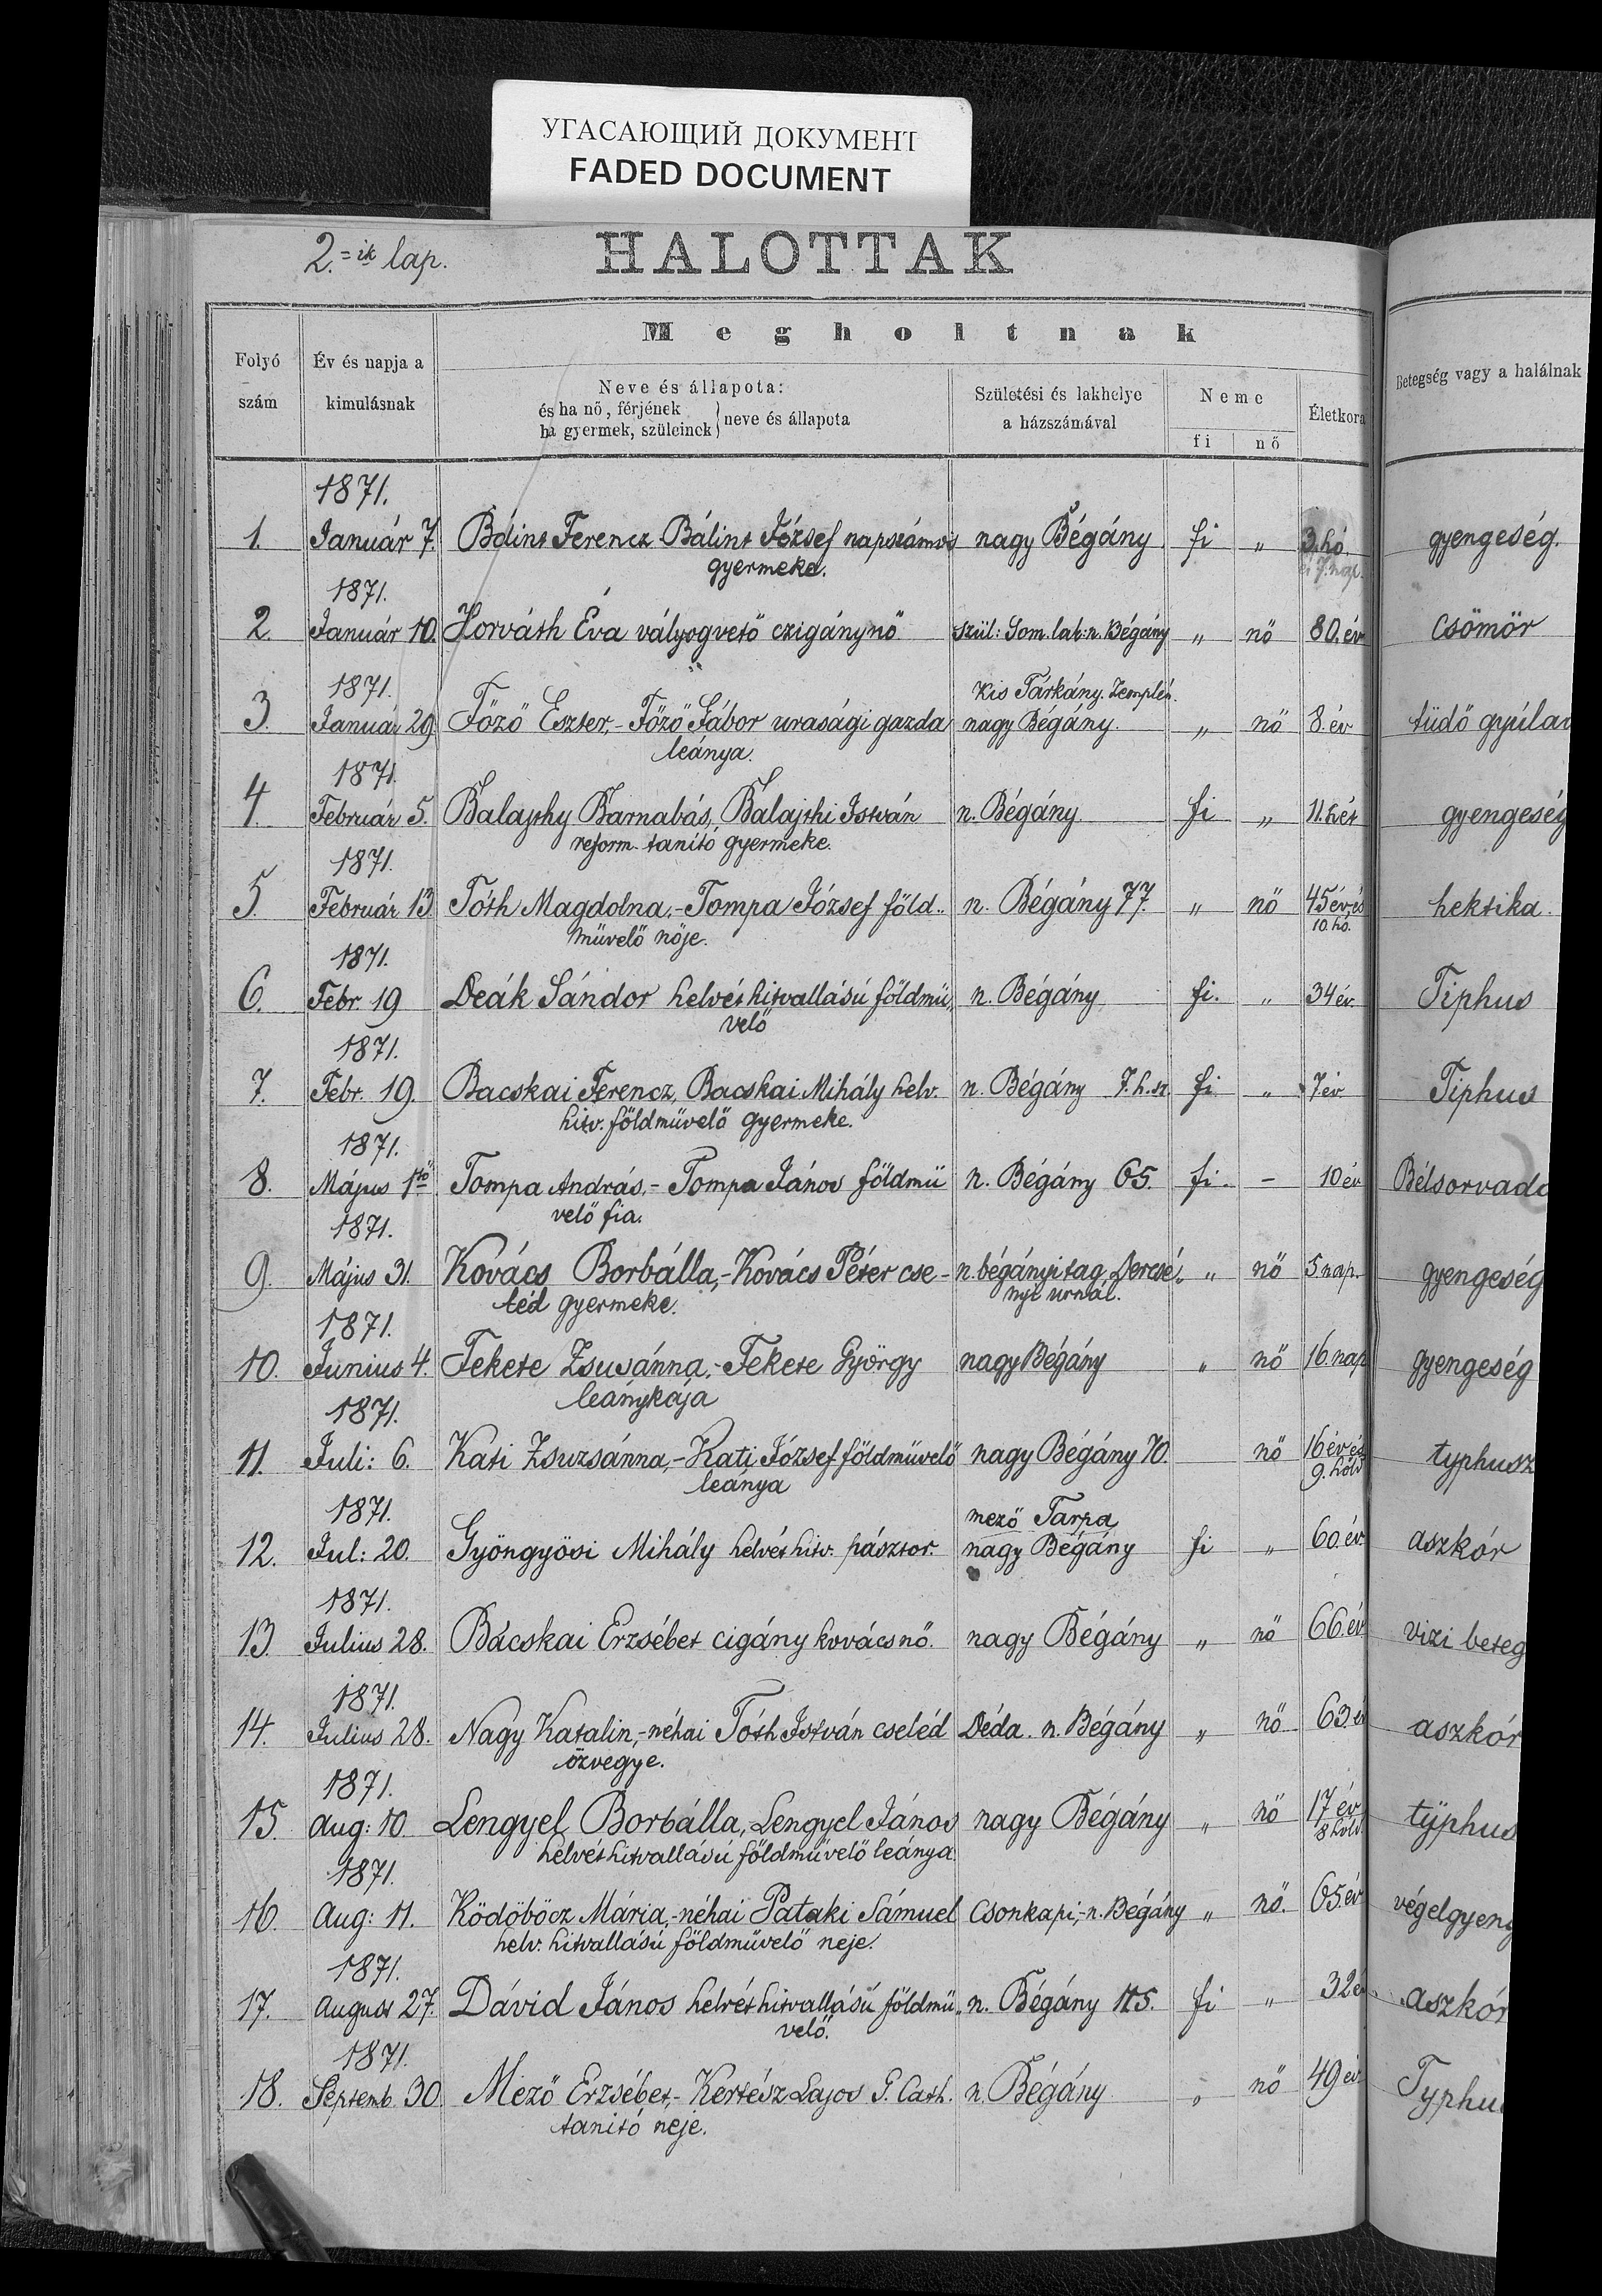 УГАСАЮЩИЙ ДОКУМЕНТ
FADED DOCUMENT
2.=ik lap.
HALOTTAK
Megholtnak
Folyó szám
Év és napja a kimulásnak
Neve és állapota:
és ha nő, férjének
ha gyermek, szüleinek } neve és állapota
Születési és lakhelye a házszámával
Neme
fi nő
Életkora
Betegség vagy a halálnak
1871.
1. Január 7. Bálint Ferencz Bálint József napszámos nagy Bégány fi „ 3. hó. gyengeség.
gyermeke. és 7. nap.
1871.
2. Január 10. Horváth Éva vályogvető czigánynő szül: Som. lak: n. Bégány „ nő 80. év csömör
1871. Kis Tárkány. Zemplén.
3. Január 29 Főző Eszter,- Főző Gábor urasági gazda nagy Bégány. „ nő 8. év tüdő
leánya.
1871.
4. Február 5. Balajthy Barnabás, Balajthi István n. Bégány fi „ 11. hét gyengeség
reform. tanító gyermeke.
1871.
5. Február 13 Tóth Magdolna,- Tompa József föld„ n. Bégány 77. „ nő 45 év és hektika.
művelő nője. 10. hó.
1871.
6. Febr. 19 Deák Sándor helvét hitvallású földmű„ n. Bégány fi. „ 34 év. Tiphus
velő
1871.
7. Febr. 19. Bacskai Ferencz, Bacskai Mihály helv. n. Bégány 7. h. sz. fi „ 7 év. Tiphus
hitv. földművelő gyermeke.
1871.
8. Május 1ső Tompa András,- Tompa János földmű n. Bégány 65. fi. - 10 év Bélsorvadá
velő fia.
1871.
9. Május 31. Kovács Borbálla,- Kovács Péter cse- n. bégányi tag, Dercsé„ „ nő 5 nap. gyengeség
léd gyermeke. nyi urnál.
1871.
10. Junius 4. Fekete Zsusánna,- Fekete György nagy Bégány „ nő 16. nap gyengeség
leánykája
1871.
11. Juli: 6. Káti Zsuzsánna,- Kati József földművelő nagy Bégány 70. nő 16 év és typhusz
leánya 9. hold
1871. mező Tarpa
12. Jul: 20. Gyöngyösi Mihály helvét hitv. pásztor. nagy Bégány fi „ 60. év. aszkór
1871.
13. Julius 28. Bácskai Erzsébet cigány kovácsnő. nagy Bégány „ nő 66. év vizi beteg
1871.
14. Julius 28. Nagy Katalin,- néhai Tóth István cseléd Déda. n. Bégány „ nő 63. é aszkór
özvegye.
1871.
15. Aug: 10 Lengyel Borbálla, Lengyel János nagy Bégány „ nő 17 év typhus
helvét hitvallásu földművelő leánya. 8 hold
1871.
16. Aug: 11. Ködöböcz Mária,- néhai Pataki Sámuel Csonkapi,- n. Bégány „ nő. 65. év végelgyeng
helv. hitvallású földművelő neje.
1871.
17. August 27. Dávid János helvét hitvallású földmű„ n. Bégány 115. fi „ 32 é aszkór
velő.
1871.
18. Septemb. 30 Mező Erzsébet,- Kertész Lajos G. Cath. n. Bégány „ nő 49 év Typhu
tanító neje.